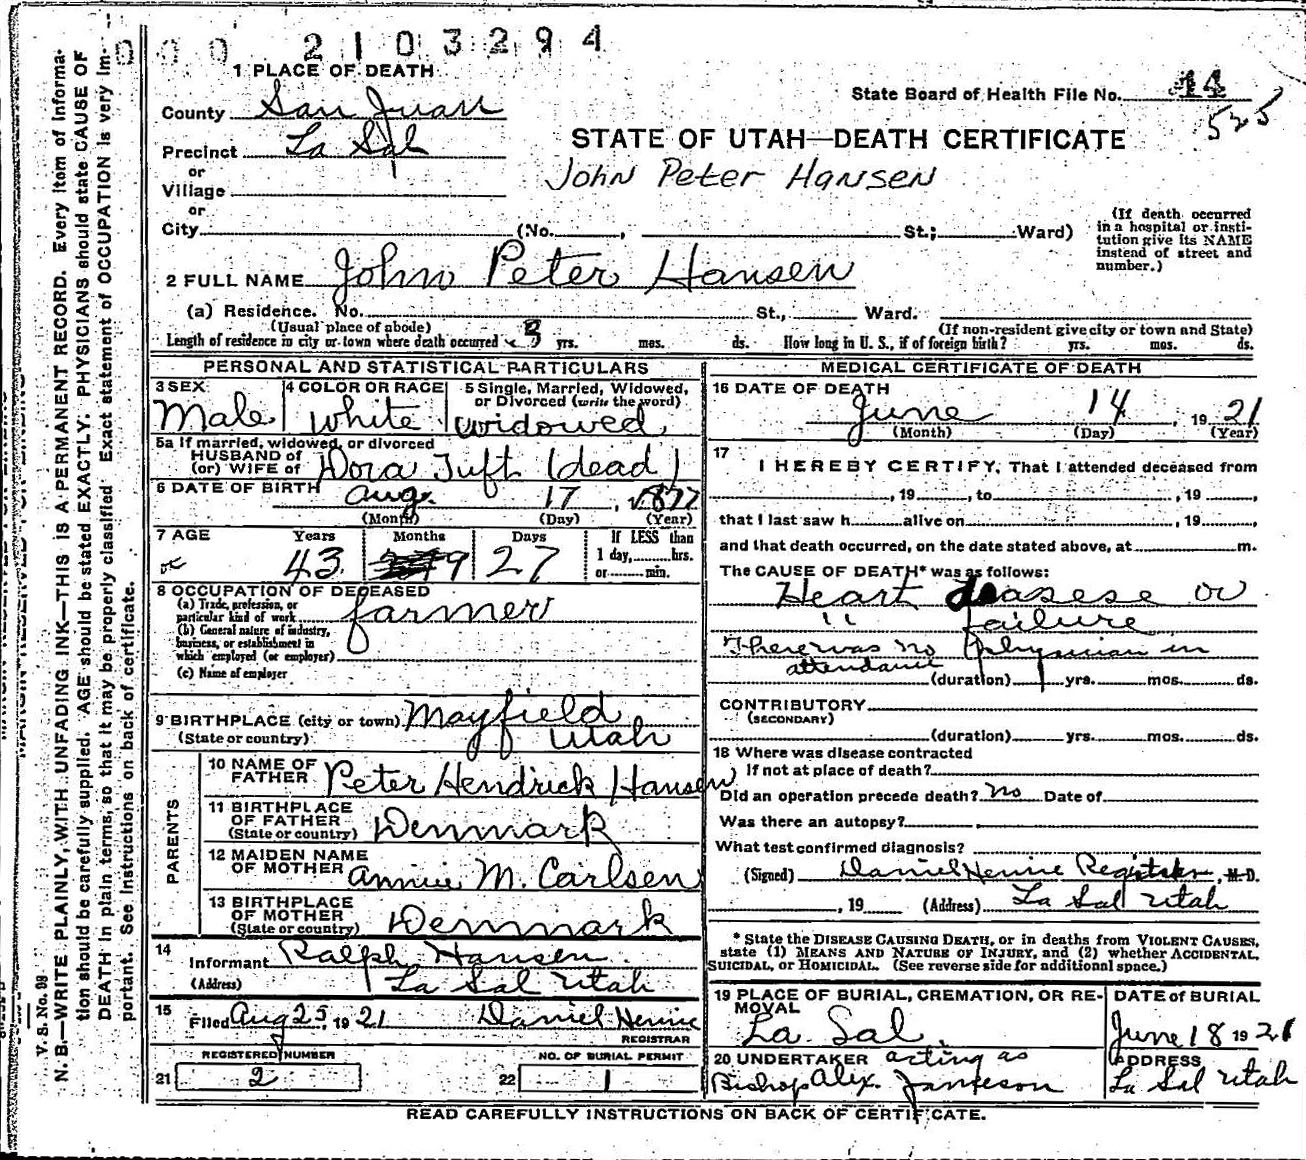 0 0 0 2 1 0 3 2 9 4
1 PLACE OF DEATH
State Board of Health File No. 44
525
County San Juan
STATE OF UTAH—DEATH CERTIFICATE
Precinct La Sal
John Peter Hansen
or
Village
or
City (No. , St.; Ward)
(If death occurred
in a hospital or insti-
tution give its NAME
instead of street and
number.)
2 FULL NAME John Peter Hansen
(a) Residence. No. St., Ward.
(Usual place of abode) (If non-resident give city or town and State)
Length of residence in city or town where death occurred 3 yrs. mos. ds. How long in U. S., if of foreign birth? yrs. mos. ds.
PERSONAL AND STATISTICAL PARTICULARS
3 SEX 4 COLOR OR RACE 5 Single, Married, Widowed,
or Divorced (write the word)
Male White widowed
5a If married, widowed, or divorced
HUSBAND of
(or) WIFE of Dora Tuft (dead)
6 DATE OF BIRTH Aug. 17, 1877
(Month) (Day) (Year)
7 AGE Years Months Days If LESS than
1 day, hrs.
or min.
43 9 27
8 OCCUPATION OF DECEASED
(a) Trade, profession, or
particular kind of work farmer
(b) General nature of industry,
business, or establishment in
which employed (or employer)
(c) Name of employer
9 BIRTHPLACE (city or town) Mayfield
(State or country) Utah
PARENTS
10 NAME OF
FATHER Peter Hendrick Hansen
11 BIRTHPLACE
OF FATHER
(State or country) Denmark
12 MAIDEN NAME
OF MOTHER Annie M. Carlsen
13 BIRTHPLACE
OF MOTHER
(State or country) Denmark
14
Informant Ralph Hansen
(Address) La Sal Utah
15
Filed Aug 25, 1921 Daniel Heinie
REGISTRAR
REGISTERED NUMBER NO. OF BURIAL PERMIT
21 2 22 1
MEDICAL CERTIFICATE OF DEATH
16 DATE OF DEATH
June 14, 1921
(Month) (Day) (Year)
17
I HEREBY CERTIFY, That I attended deceased from
, 19 , to , 19 ,
that I last saw h alive on , 19 ,
and that death occurred, on the date stated above, at m.
The CAUSE OF DEATH* was as follows:
Heart deasese or
" failure
There was no physician in
attendance
(duration) yrs. mos. ds.
CONTRIBUTORY
(SECONDARY)
(duration) yrs. mos. ds.
18 Where was disease contracted
If not at place of death?
Did an operation precede death? No Date of
Was there an autopsy?
What test confirmed diagnosis?
(Signed) Daniel Heinie Registrar, M.D.
, 19 (Address) La Sal Utah
* State the DISEASE CAUSING DEATH, or in deaths from VIOLENT CAUSES,
state (1) MEANS AND NATURE OF INJURY, and (2) whether ACCIDENTAL,
SUICIDAL, or HOMICIDAL. (See reverse side for additional space.)
19 PLACE OF BURIAL, CREMATION, OR RE-
MOVAL
La Sal.
DATE of BURIAL
June 18 1921
20 UNDERTAKER acting as
Bishop Alex. Jameson
ADDRESS
La Sal Utah
READ CAREFULLY INSTRUCTIONS ON BACK OF CERTIFICATE.
V. S. No. 99
N. B.—WRITE PLAINLY, WITH UNFADING INK—THIS IS A PERMANENT RECORD. Every item of informa-
tion should be carefully supplied. AGE should be stated EXACTLY. PHYSICIANS should state CAUSE OF
DEATH in plain terms, so that it may be properly classified. Exact statement of OCCUPATION is very im-
portant. See instructions on back of certificate.